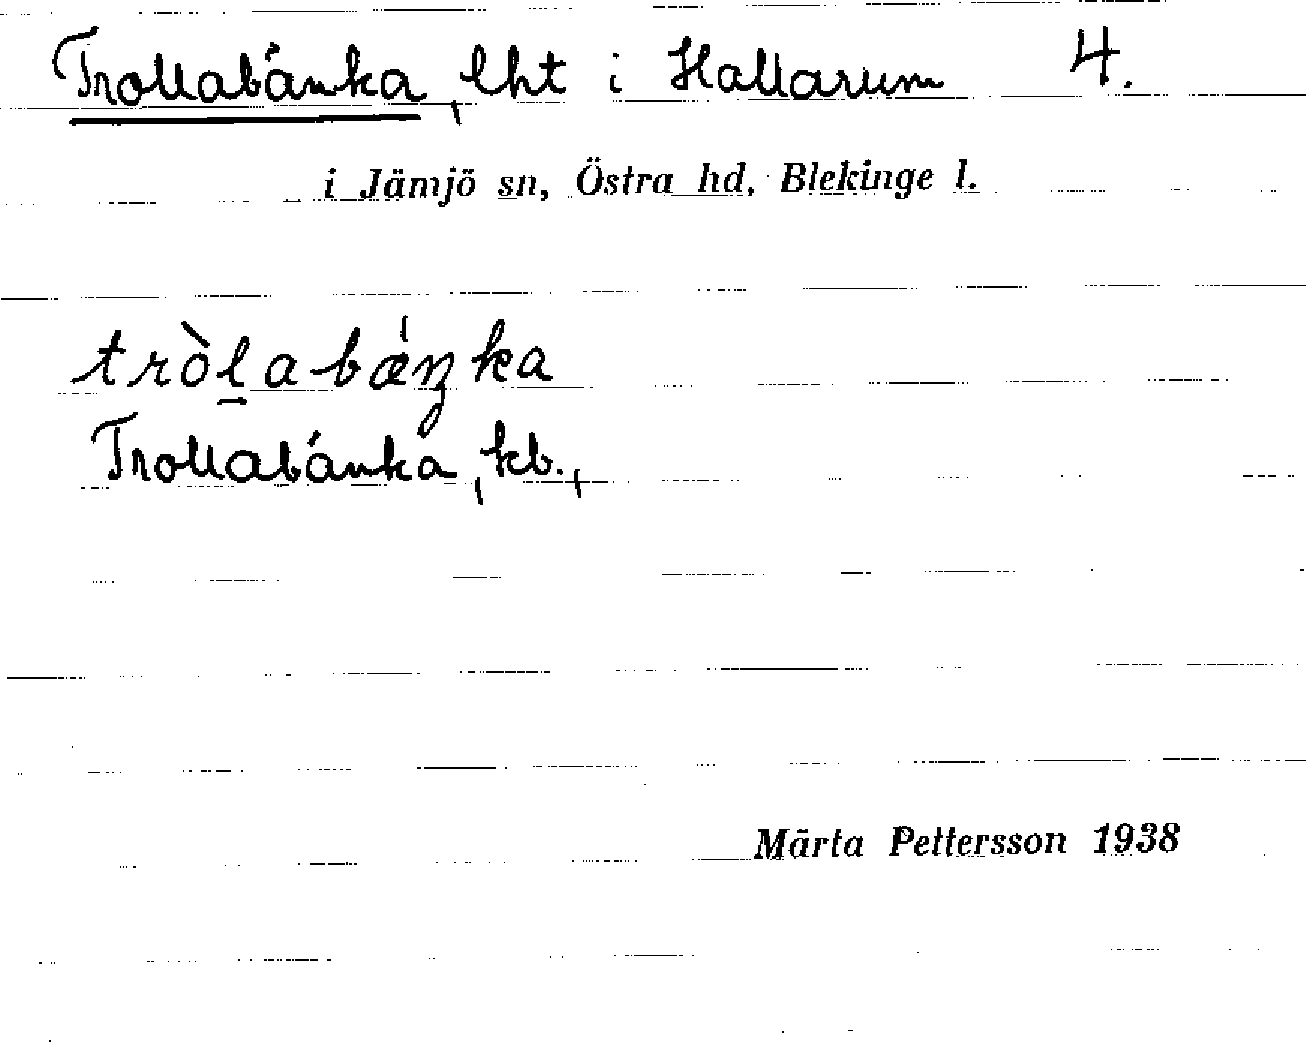 Trollabånka, lht i Hallarum 4.
i Jämjö sn, Östra hd, Blekinge l.
tròl̠abǽŋka
Trollabånka, kb.,
Märta Pettersson 1938